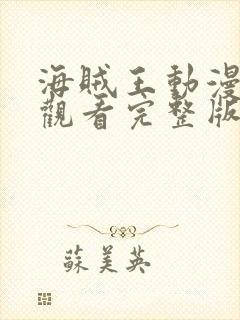 海賊王動漫
觀看完整版
蘇美英